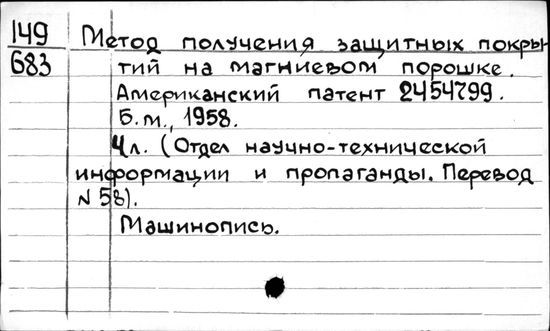 149
683
Метод получения защитных покры-
тий на магниевом порошке.
Американский патент 2454799.
Б.м., 1958.
4л. (Отдел научно-технической
информации и пропаганды. Перевод
N 58).
Машинопись.